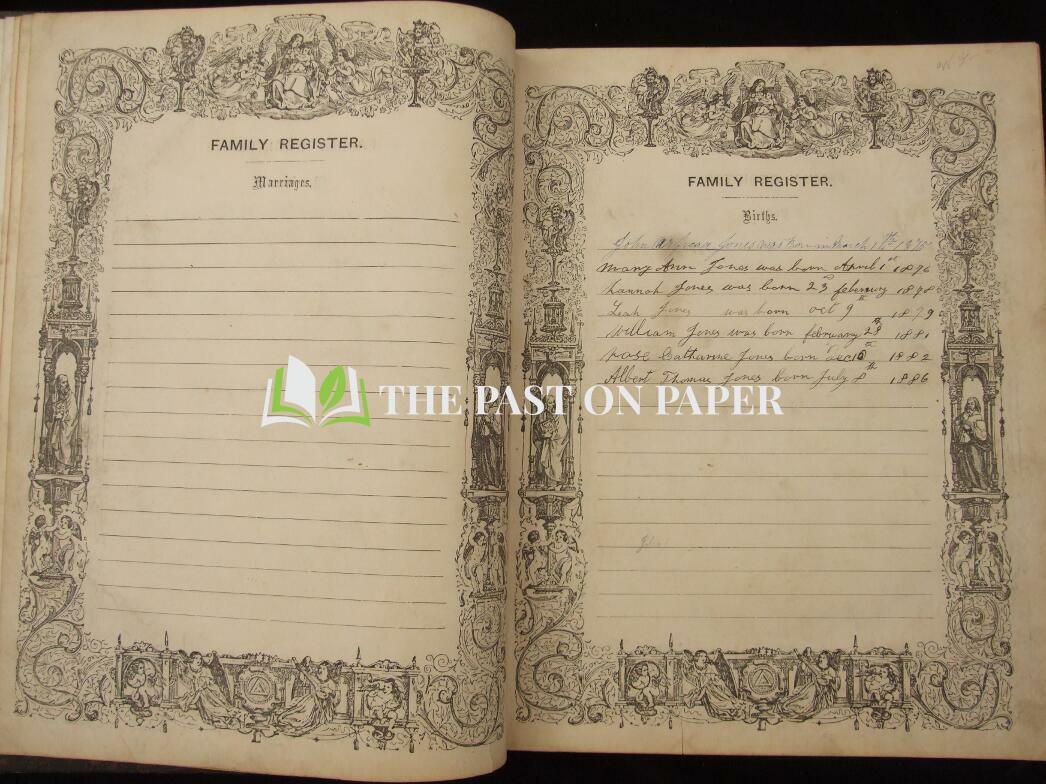 FAMILY REGISTER.
Marriages.
FAMILY REGISTER.
Births.
John Jones was born in March 11th 1875
Mary Ann Jones was born April 1st 1876
Hannah Jones was born 23rd feberury 1878
Leah Jones was born oct 9th 1879
William Jones was born february 28th 1881
rose Catharine Jones born dec 10th 1882
Albert Thomas Jones born July 8th 1886
THE PAST ON PAPER